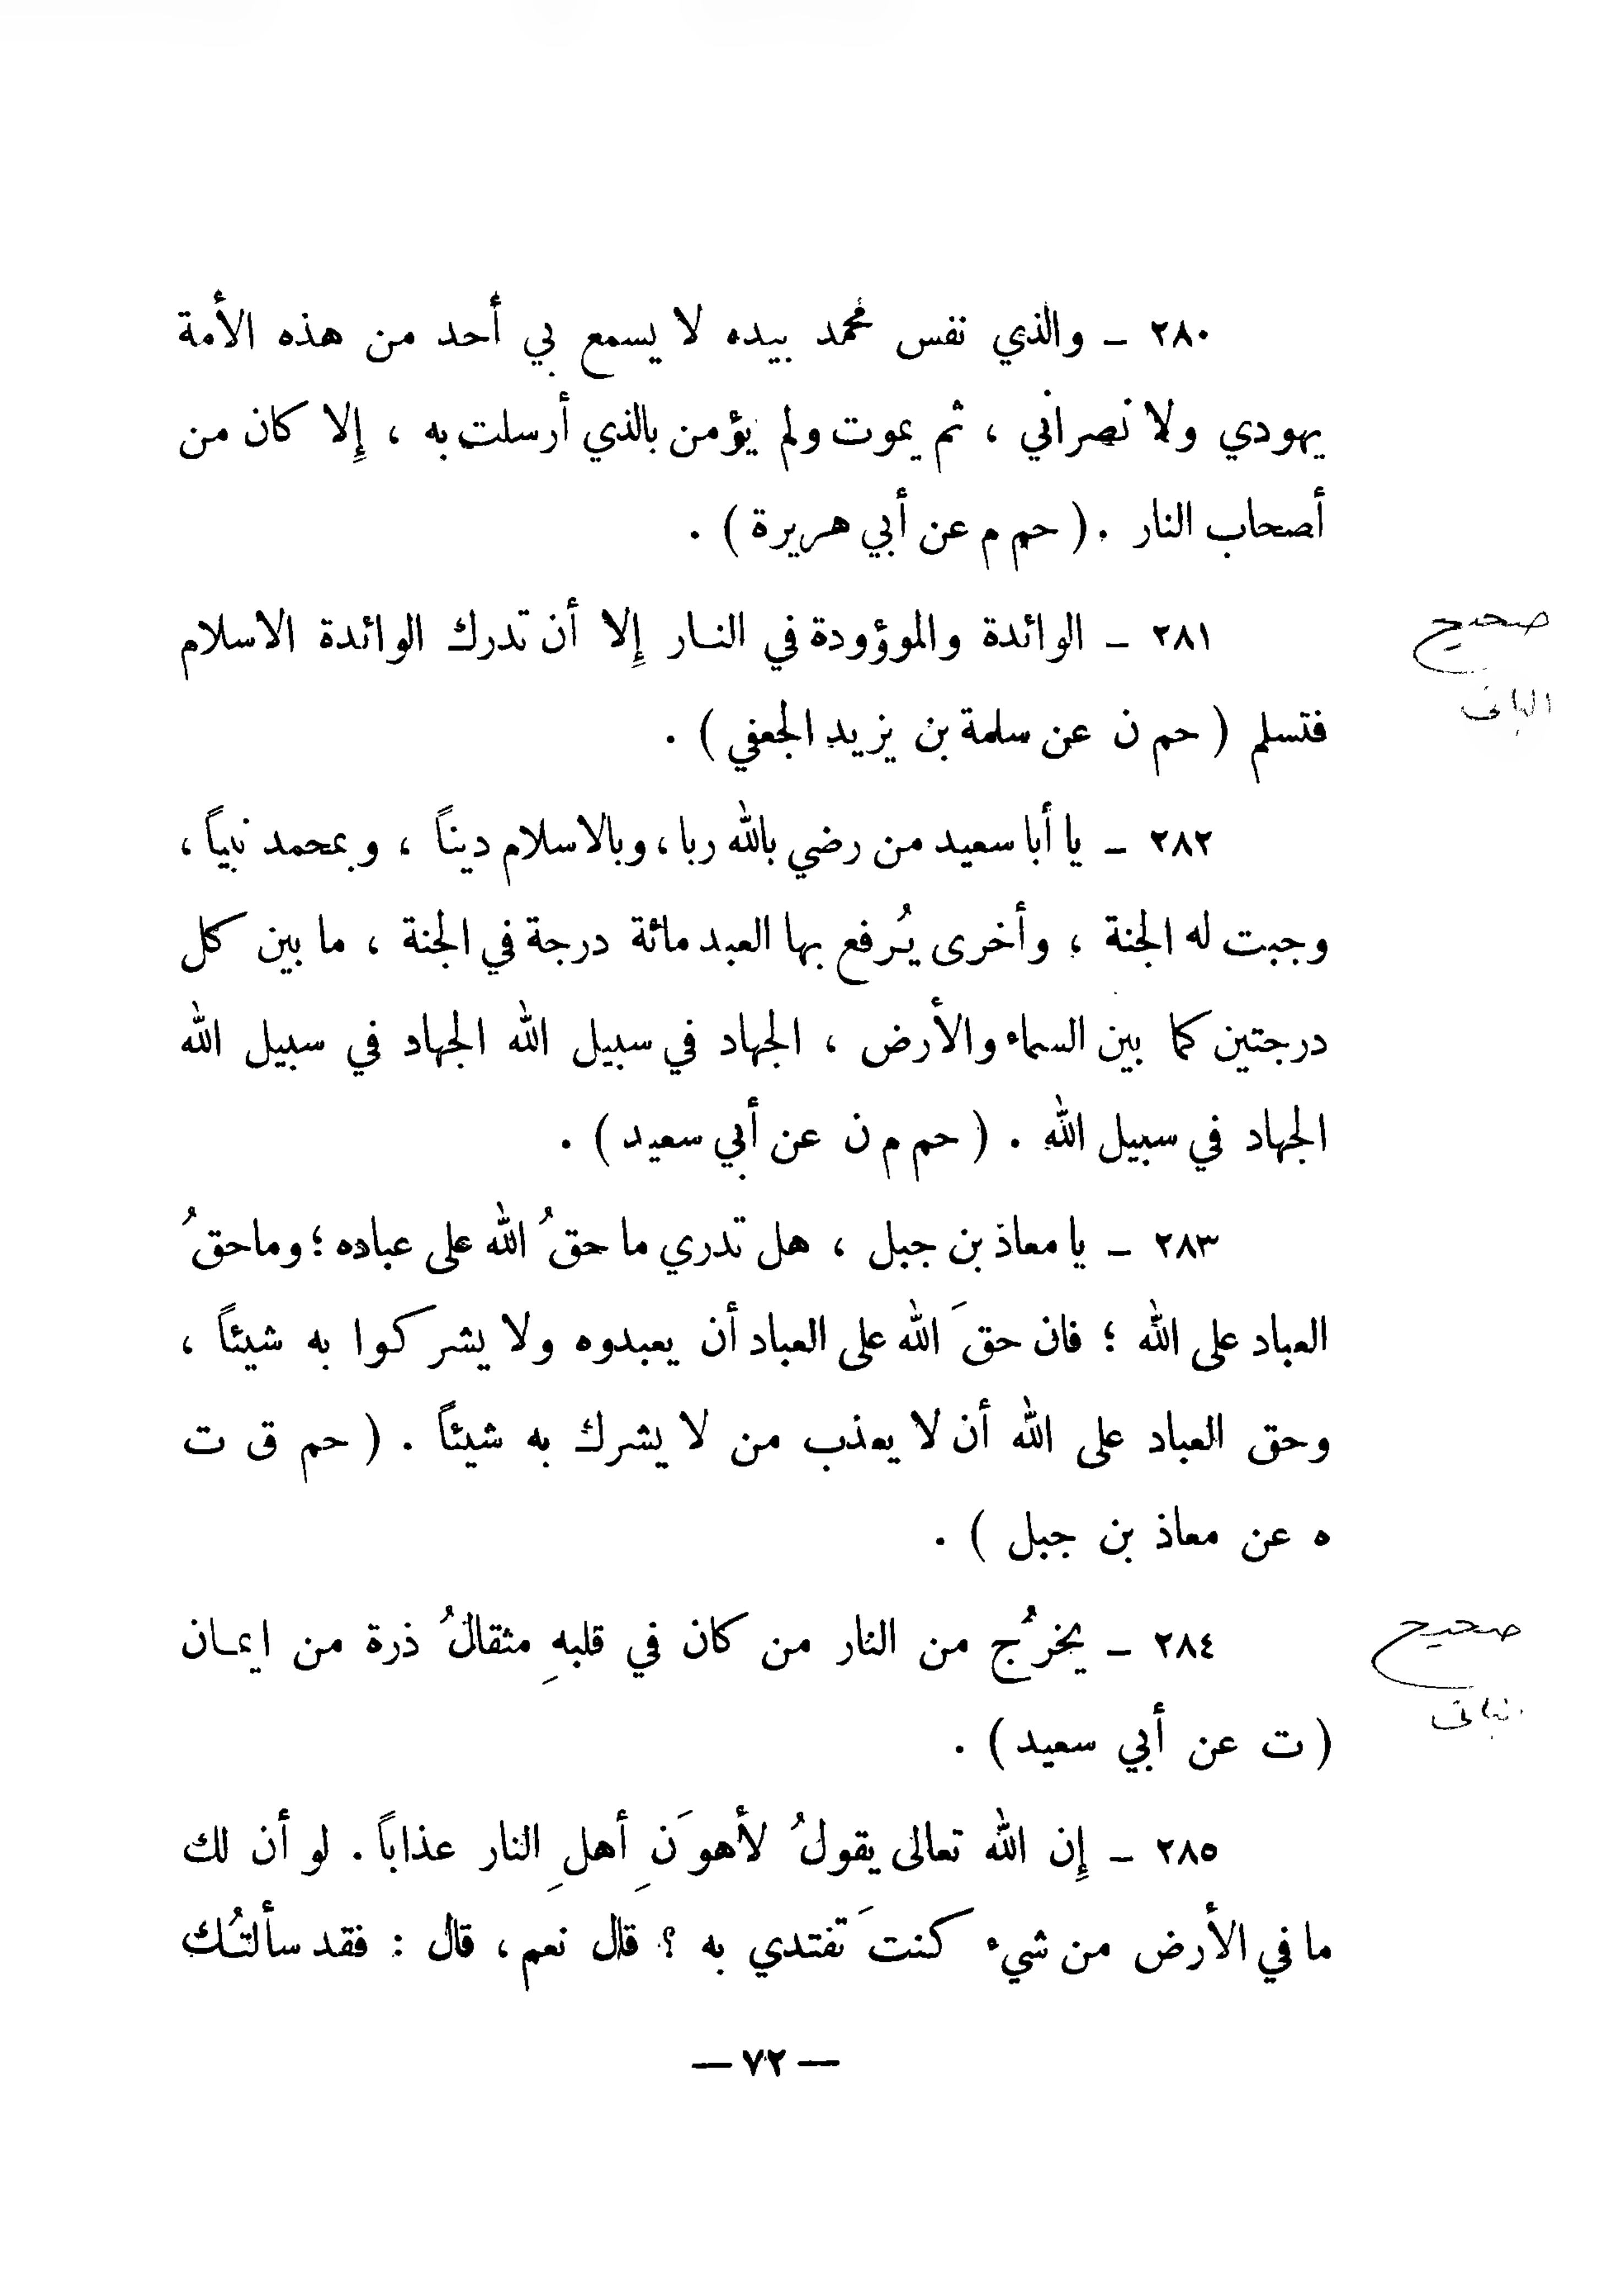 ٢٨٠ ـ والذي نفس محمد بيده لا يسمع بي أحد من هذه الأمة
يهودي ولا نصراني ، ثم يموت ولم يؤمن بالذي أرسلت به ، إِلا كان من
أصحاب النار . ( حم م عن أبي هريرة ) .
٢٨١ ـ الوائدة والموؤودة في النـار إِلا أن تدرك الوائدة الاسلام
صحيح
البانى
فتسلم ( حم ن عن سلمة بن يزيد الجعفي ) .
٢٨٢ ـ يا أبا سعيد من رضي بالله ربا ، وبالاسلام ديناً ، وبمحمد نبياً ،
وجبت له الجنة ، وأخرى يُرفع بها العبد مائة درجة في الجنة ، ما بين كل
درجتين كما بين السماء والأرض ، الجهاد في سبيل الله الجهاد في سبيل الله
الجهاد في سبيل الله . ( حم م ن عن أبي سعيد ) .
٢٨٣ ـ يا معاذ بن جبل ، هل تدري ما حقُ الله على عباده ؛ وما حقُ
العباد على الله ؛ فان حقَ الله على العباد أن يعبدوه ولا يشركوا به شيئاً ،
وحق العباد على الله أن لا يعذب من لا يشرك به شيئاً . ( حم ق ت
ه عن معاذ بن جبل ) .
٢٨٤ ـ يخرُج من النار من كان في قلبهِ مثقالُ ذرة من ايمـان
صحيح
( ت عن أبي سعيد ) .
٢٨٥ ـ إِن الله تعالى يقولُ لأهوَنِ أهلِ النار عذاباً . لو أن لك
ما في الأرض من شيء كنتَ تفتدي به ؟ قال نعم ، قال : فقد سألتُك
— ٧٢ —